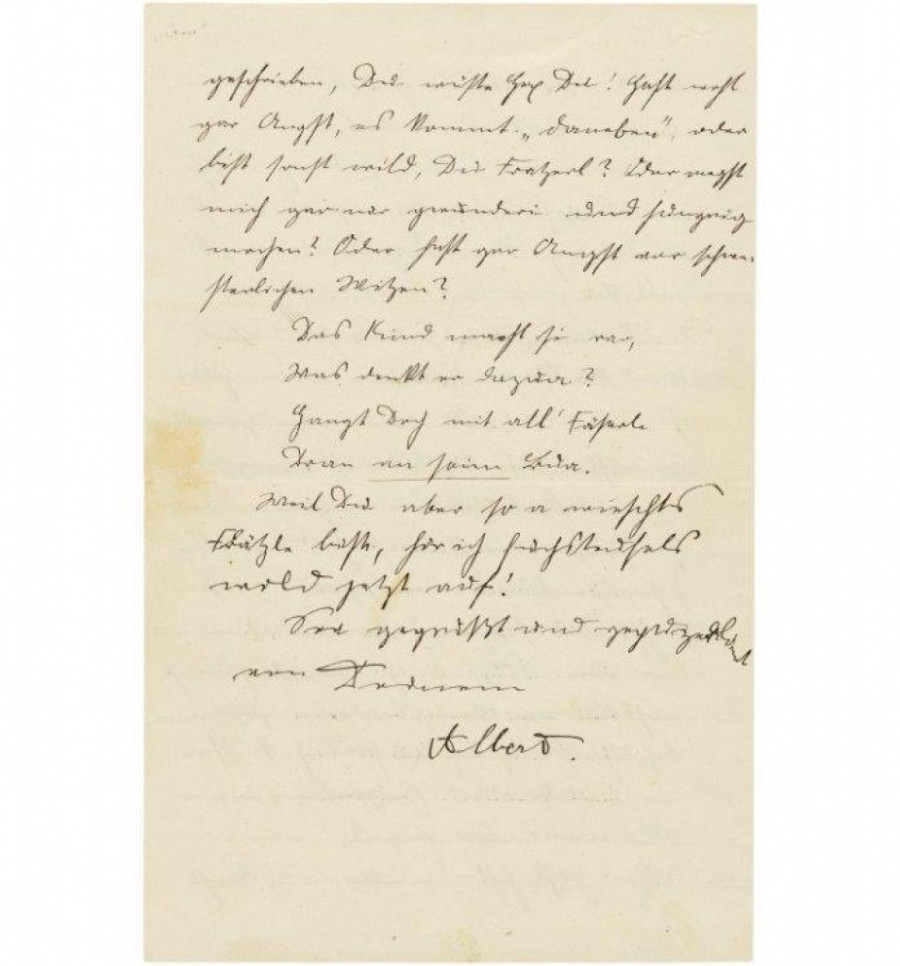 geschrieben, Du wüste Hex Du! Hast wohl
gar Angst, es kommt „daneben", oder
bist sonst wild, Du Fratzerl? Oder magst
mich gar nur und hungrig
machen? Oder hast gar Angst vor schwe-
sterlichen Witzen?
Das Kind macht si rar,
Was denkt er dazua?
Hangt doch mit all' Fäserle
Dran an seim Bua.
Weil Du aber so a wieschts
Frätzle bist, hör ich fuchsteufels
wild jetzt auf!
Sei gegrüßt und
von Deinem
Albert.